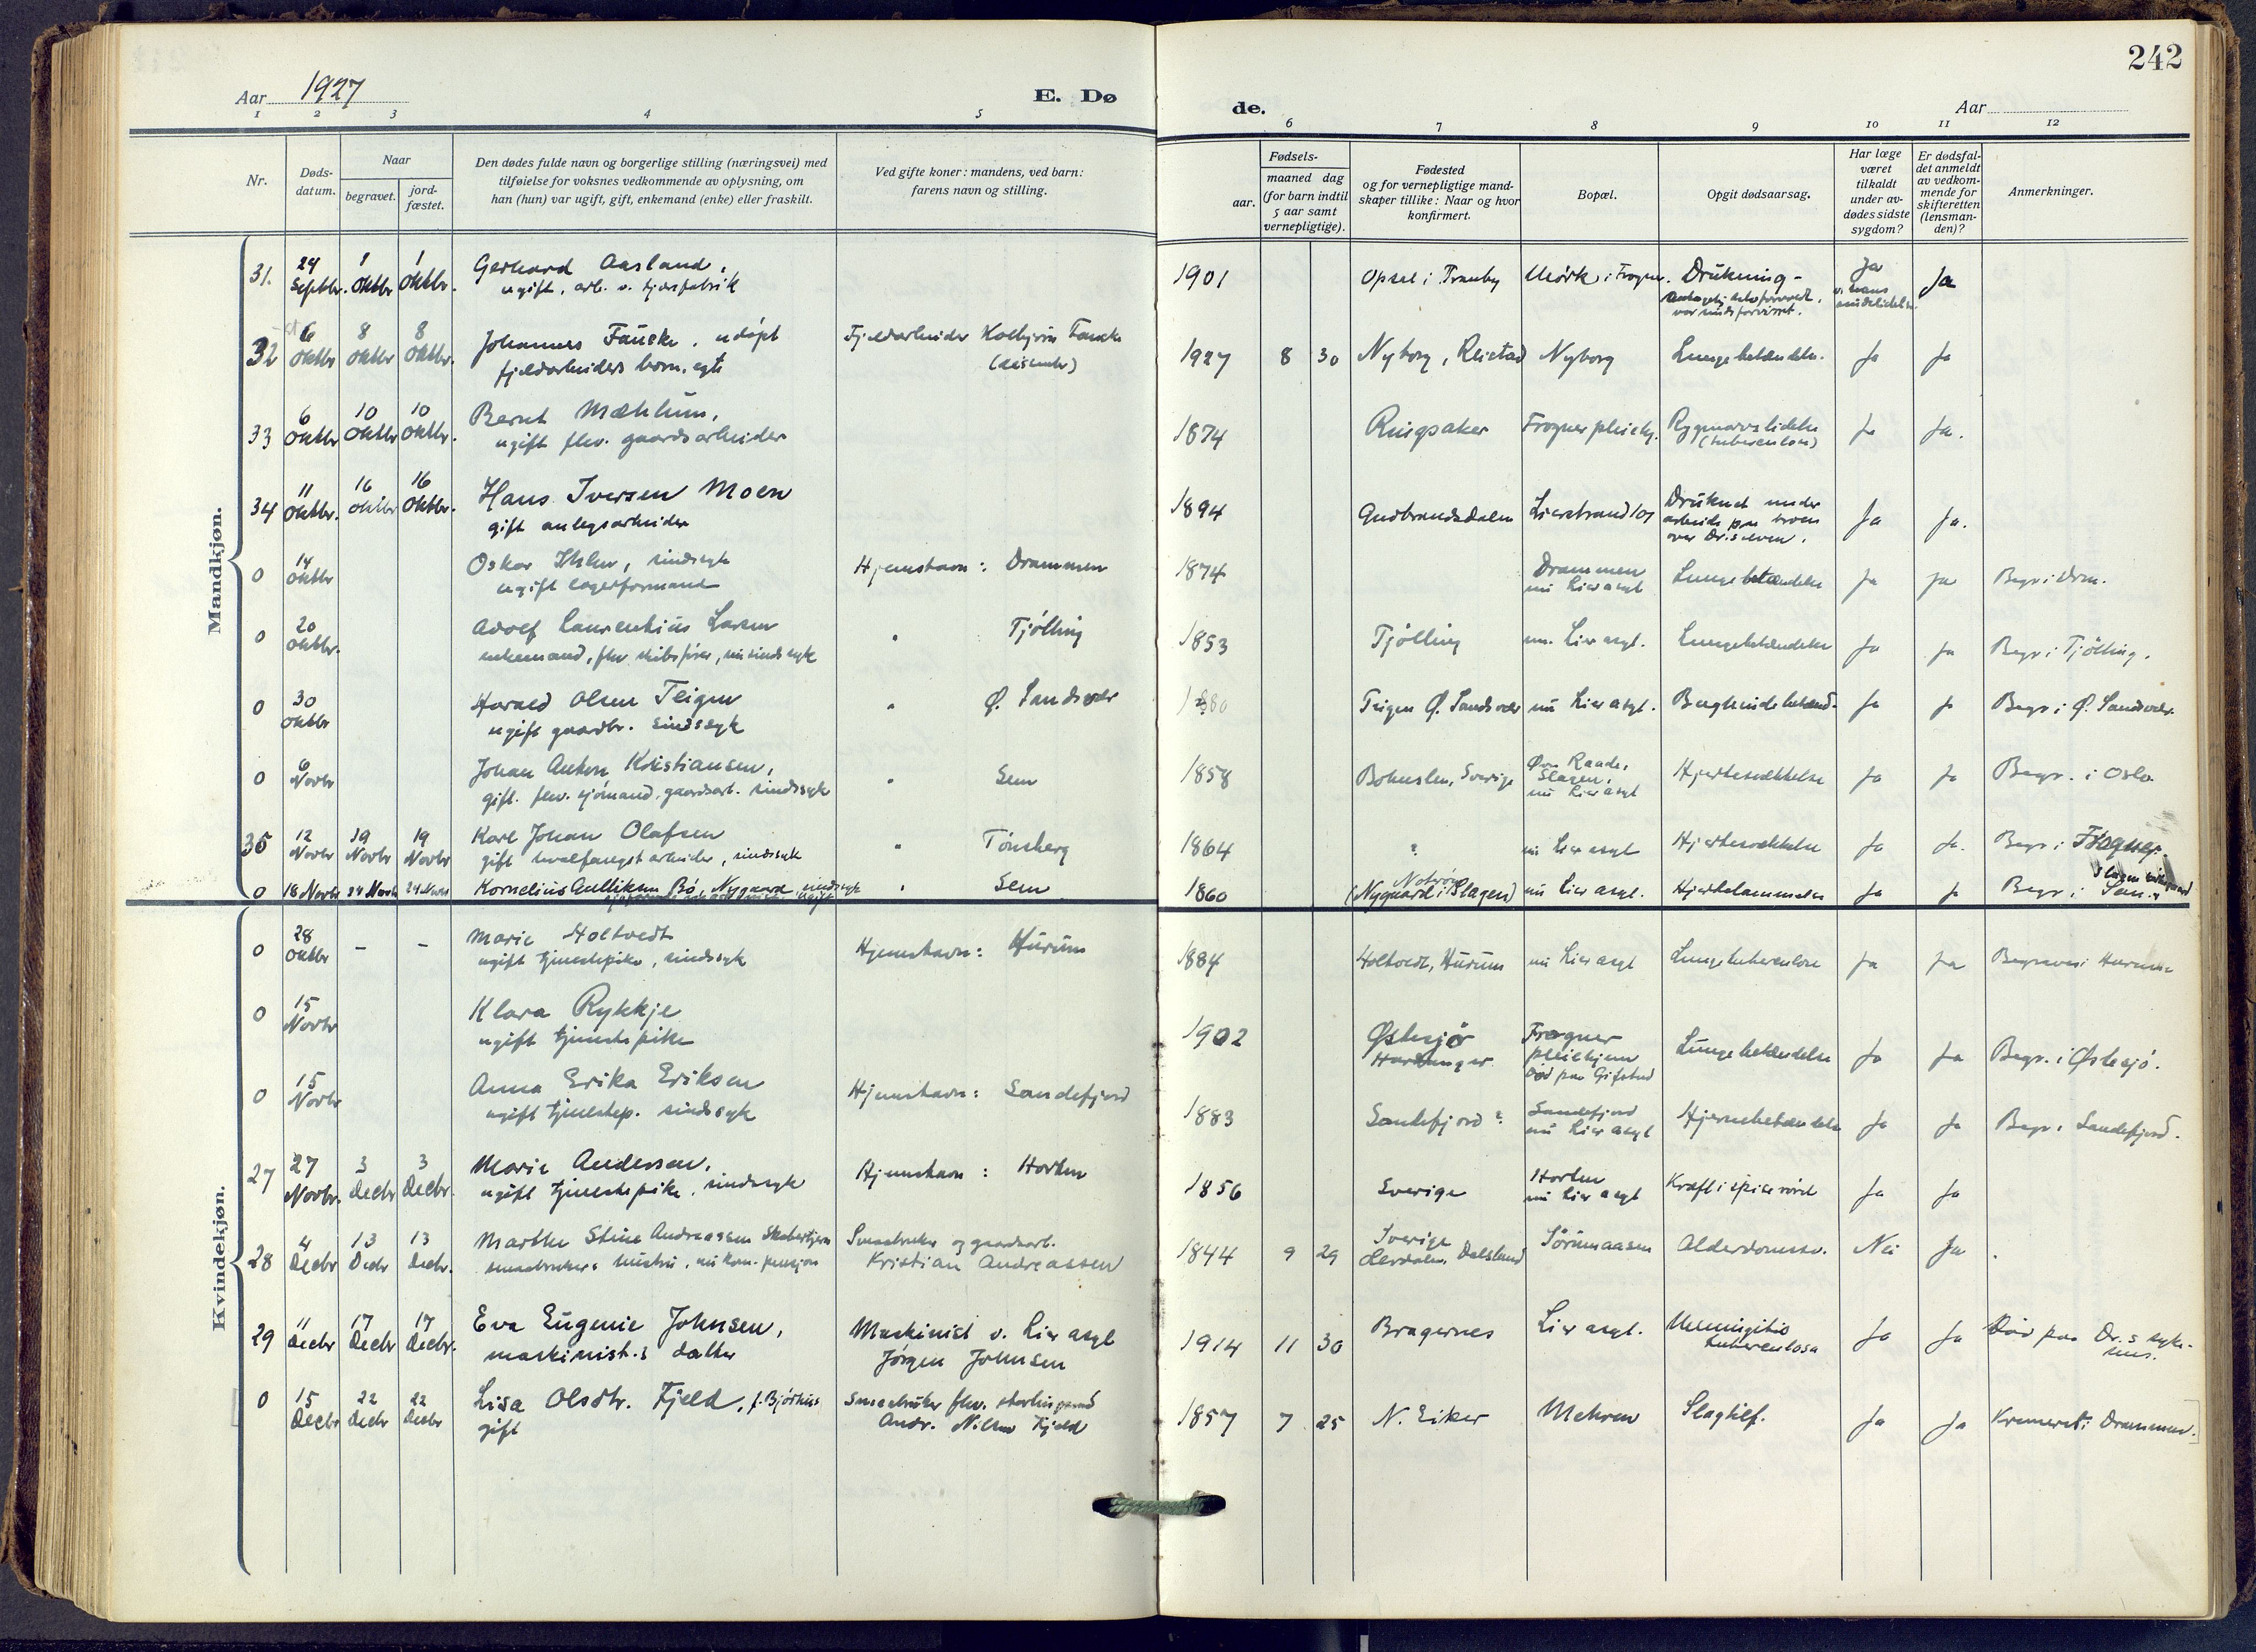 242
Aar 1927
E. Dø
de.
Aar
1 2 3 4 5
6 7 8 9 10 11 12
Nr.
Døds-
datum.
Naar
begravet.
jord-
fæstet.
Den dødes fulde navn og borgerlige stilling (næringsvei) med
tilføielse for voksnes vedkommende av oplysning, om
han (hun) var ugift, gift, enkemand (enke) eller fraskilt.
Ved gifte koner: mandens, ved barn:
farens navn og stilling.
Fødsels-
aar.
maaned dag
(for barn indtil
5 aar samt
vernepligtige).
Fødested
og for vernepligtige mand-
skaper tillike: Naar og hvor
konfirmert.
Bopæl.
Opgit dødsaarsag.
Har læge
været
tilkaldt
under av-
dødes sidste
sygdom?
Er dødsfal-
det anmeldt
av vedkom-
mende for
skifteretten
(lensman-
den)?
Anmerkninger.
Mandkjøn.
31. 24 Septbr. 1 Oktbr 1 Oktbr. Gerhard Aasland,
ugift, arb. v. tjærefabrik
1901 Opsal i Tranby Mörk i Frogner. Drukning - Ja Ja
var sindsforvirret.
32 6 Oktbr 8 Oktbr 8 Oktbr. Johannes Fauske, udöpt
fjeldarbeiders barn, egte
Fjeldarbeider Kolbjörn Fauske
(dissenter)
1927 8 30 Nyborg, Reistad Nyborg Lungebetændelse. Ja Ja
33 6 Oktbr 10 Oktbr 10 Oktbr. Bernt Mæhlum,
ugift fhv. gaardsarbeider
1874 Ringsaker Frogner pleiehj. Rygmarvslidelse
(tuberculose) Ja Ja.
34 11 Oktbr. 16 Oktbr 16 Oktbr. Hans Iversen Moen
gift anlegsarbeider
1894 Gudbrandsdalen Lierstrand 101 Druknet under
arbeide paa broen
over Dr.selven. Ja Ja.
0 14 Oktbr Oskar, sindssyk
ugift lagerformand
Hjemstavn: Drammen
1874 Drammen
nu Lier asyl Lungebetændelse Ja Ja Begr. i Drm.
0 20 Oktbr. Adolf Laurentius Larsen
enkemand, fhv. skibsförer, nu sindssyk
" Tjölling
1853 Tjölling nu. Lier asyl. Lungebetændelse Ja Ja Begr. i Tjölling.
0 30 Oktbr Harald Olsen Teigen
ugift gaardbr. sindssyk
" Ø. Sandsvær
1880 Teigen Ø. Sandsvær nu Lier asyl. Bughindebetænd. Ja Ja Begr. i Ø. Sandsvær.
0 6 Novbr Johan Anton Kristiansen,
gift. fhv. sjömand, gaardsarb. sindssyk
" Sem
1858 Bohuslen, Sverige Slagen,
nu Lier asyl Hjertesvækkelse Ja Ja Begr. i Oslo.
35 12 Novbr 19 Novbr 19 Novbr Karl Johan Olafsen
gift hvalfangstarbeider, sindssyk
" Tönsberg
1864 ? nu Lier asyl Hjertesvækkelse Ja Ja. Begr. i Frogner.
0 18 Novbr 24 Novbr 24 Novbr Kornelius Gulliksen Bö, Nygaard, sindssyk
" Sem
1860 (Nygaard i Slagen) nu Lier asyl. Hjertelammelse Ja Ja Begr. i Sem
Kvindekjøn.
0 28 Oktbr - - Marie Holtvedt
ugift tjenestepike, sindssyk
Hjemstavn: Hurum
1884 Holtvedt, Hurum nu Lier asyl Lungetuberculose Ja Ja Begraves i Hurum
0 15 Novbr Klara Rykkje
ugift tjenestepike
1902 Østesjö
Hardanger Frogner
pleiehjem
död paa Gifstad Lungebetændelse Ja Ja Begr. i Østesjö.
0 15 Novbr Anna Erika Eriksen
ugift tjenestep. sindssyk
Hjemstavn: Sandefjord
1883 Sandefjord? Sandefjord
nu Lier asyl Hjernebetændelse Ja Ja Begr. i Sandefjord.
27 27 Novbr. 3 Decbr 3 Decbr. Marie Andersen,
ugift tjenestepike, sindssyk
Hjemstavn: Horten
1856 Sverige Horten
nu Lier asyl Kræft i spiserøret Ja Ja
28 4 Decbr 13 Decbr 13 Decbr. Marthe Stine Andreassen
smaabrukers hustru, nu kom. pensjon
Smaabruker og gaardsarb.
Kristian Andreassen
1844 9 29 Sverige
Dalsland Sörumaasen Alderdomssv. Nei Ja
29 11 Decbr 17 Decbr 17 Decbr. Eva Eugenie Johnsen,
maskinist.s datter
Maskinist v. Lier asyl
Jörgen Johnsen
1914 11 30 Bragernes Lier asyl. Meningitis
tuberculosa Ja Ja Död paa Dr.s syke-
hus.
0 15 Decbr 22 Decbr 22 Decbr Lisa Olsdtr. Fjeld, f. Björhus
gift
Smaabruker fhv.
Andr. Nilsen Fjeld
1857 7 25 N. Eiker Mehren Slagtilf. Ja Ja Kremeret i Drammen.